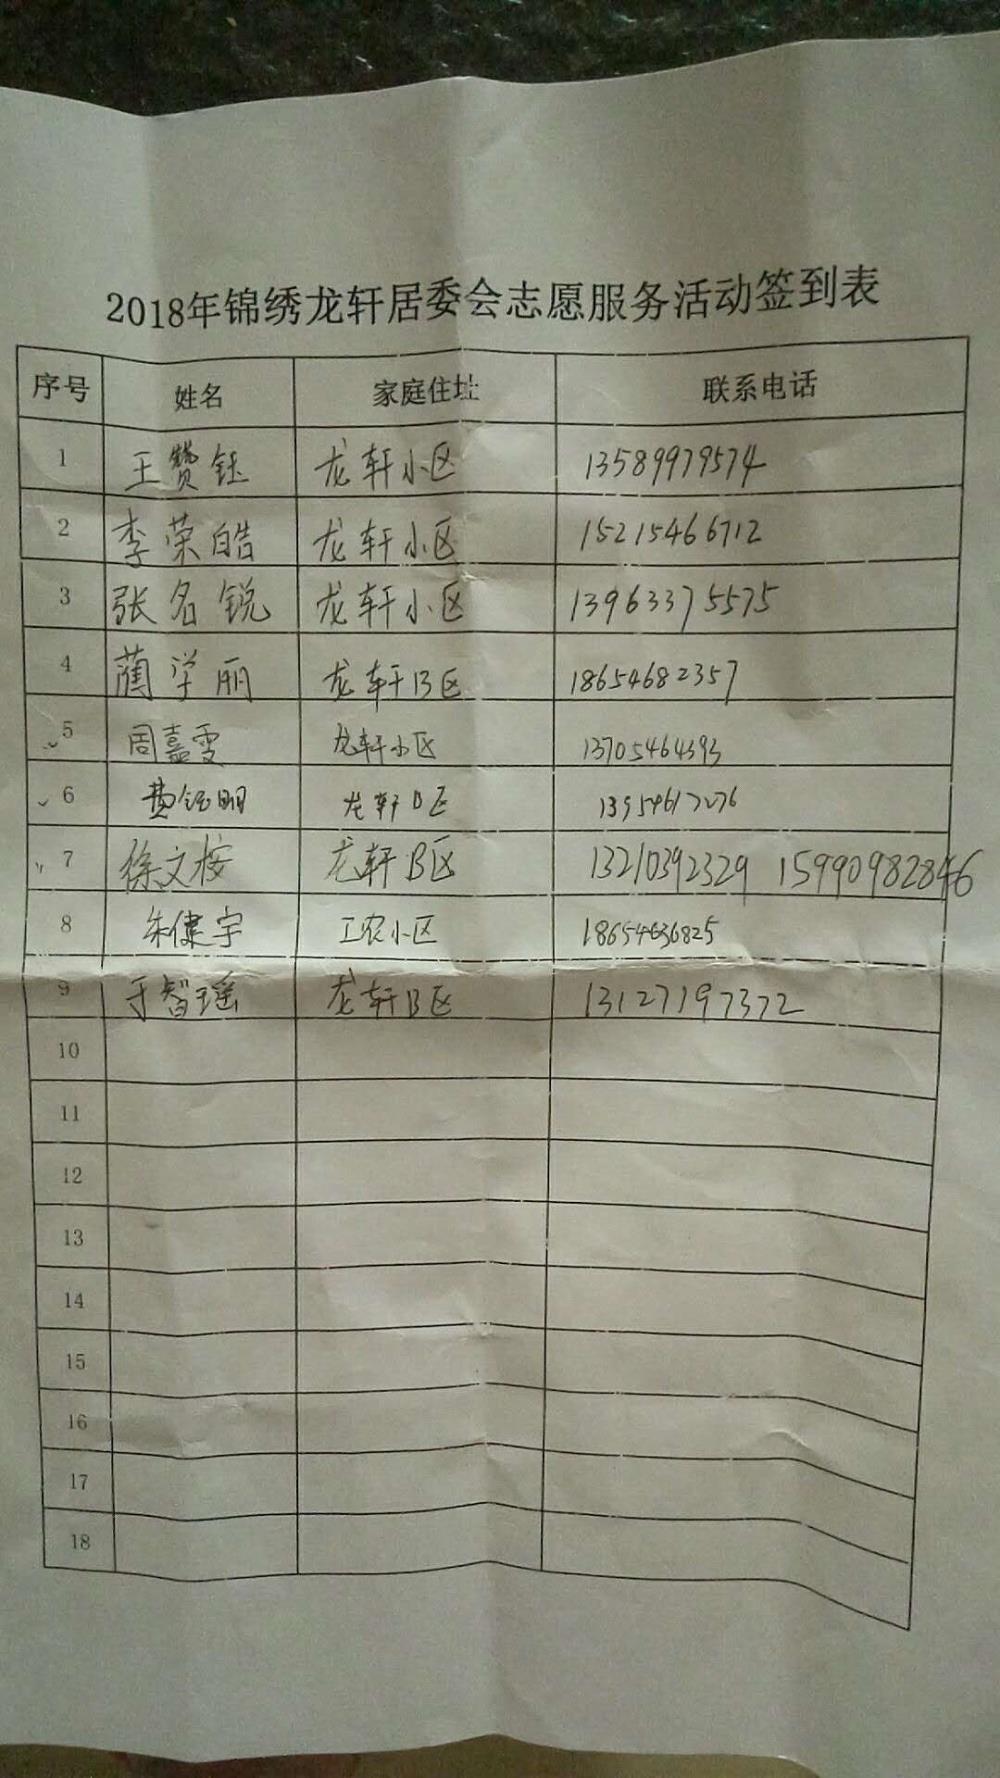 2018年锦绣龙轩居委会志愿服务活动签到表
序号 姓名 家庭住址 联系电话
1 王赞钰 龙轩小区 13589979574
2 李荣皓 龙轩小区 15215466712
3 张名锐 龙轩小区 13963375575
4 蔺学丽 龙轩B区 18654682357
5 周嘉雯 龙轩小区 13705464393
6 费钰明 龙轩B区 13954617276
7 徐文桉 龙轩B区 13210392329 15990982846
8 朱健宇 工农小区 18654636825
9 于智瑶 龙轩B区 13127197372
10
11
12
13
14
15
16
17
18